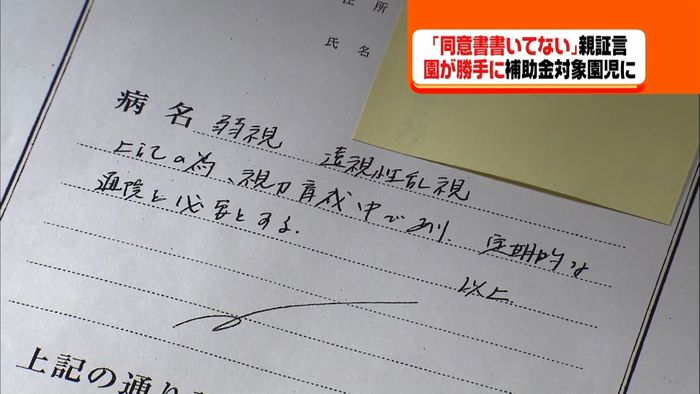 「同意書書いてない」親証言
園が勝手に補助金対象園児に
住所
氏名
病名 弱視 遠視性乱視
上記の為、視力育成中であり、定期的な
通院を必要とする。
以上
上記の通り